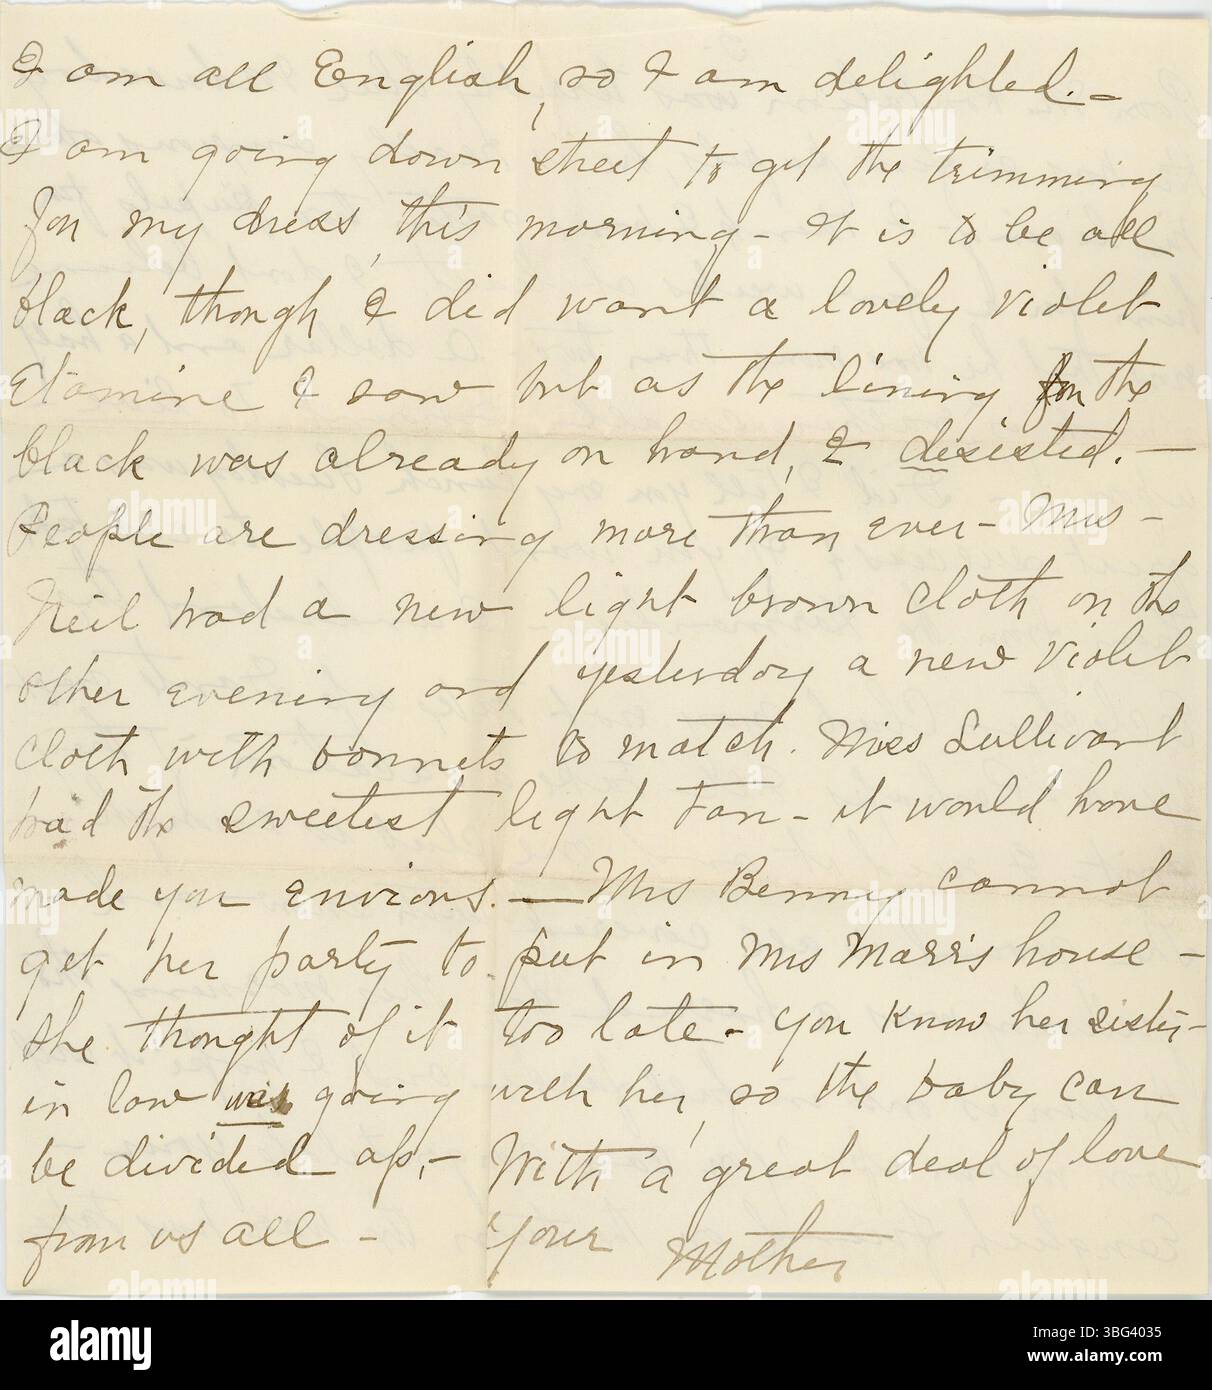 I am all English, so I am delighted. —
I am going down street to get the trimming
for my dress, this morning — It is to be all
black, though I did want a lovely violet
Etamine I saw but as the lining for the
black was already on hand, I desisted. —
People are dressing more than ever — Mrs —
Neil had a new light brown cloth on the
other evening and yesterday a new violet
cloth with bonnets to match. Miss Sullivant
had the sweetest light tan — it would have
made you envious. — Mrs Benny cannot
get her party to put in Mrs Marr's house —
she thought of it too late — you know her sister-
in law was going with her, so the baby can
be divided up, — With a great deal of love
from us all — Your Mother
alamy
Image ID: 3BG4035
www.alamy.com